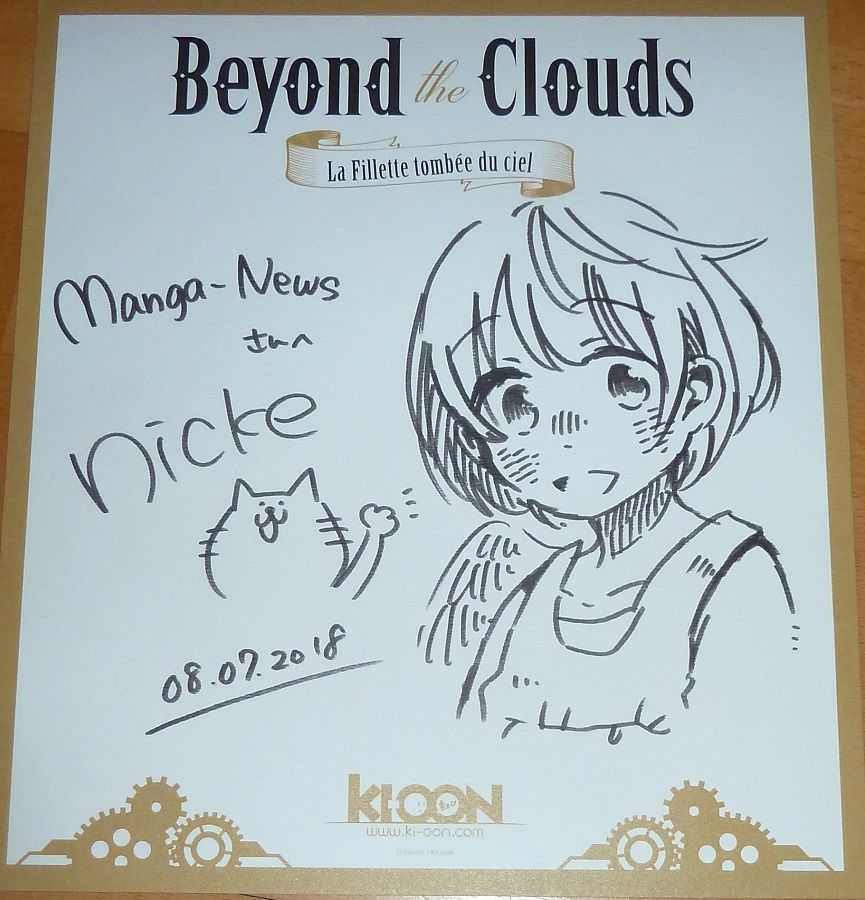 Beyond the Clouds
La Fillette tombée du ciel
Manga-News
さんへ
nicke
08.07.2018
KI-OON
www.ki-oon.com
© Nicke / Ki-oon